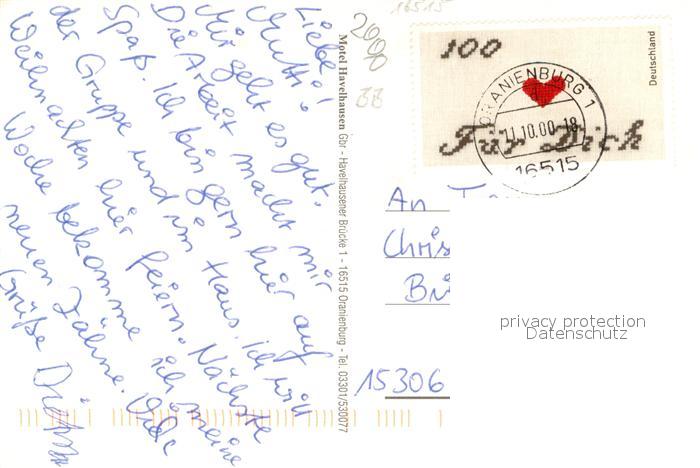 Liebe
Mutti!
Mir geht es gut.
Die Arbeit macht mir
Spaß. Ich bin gern hier auf
der Gruppe und im Haus. Ich will
Weihnachten hier feiern. Nächste
Woche bekomme ich meine
neuen Zähne.
Grüße
2000
BB
16515
Motel Havelhausen Gbr - Havelhausener Brücke 1 - 16515 Oranienburg - Tel. 03301/530077
100
Deutschland
Für Dich
ORANIENBURG 1
11.10.00-18
16515
An
Chris
Br
15306
privacy protection
Datenschutz